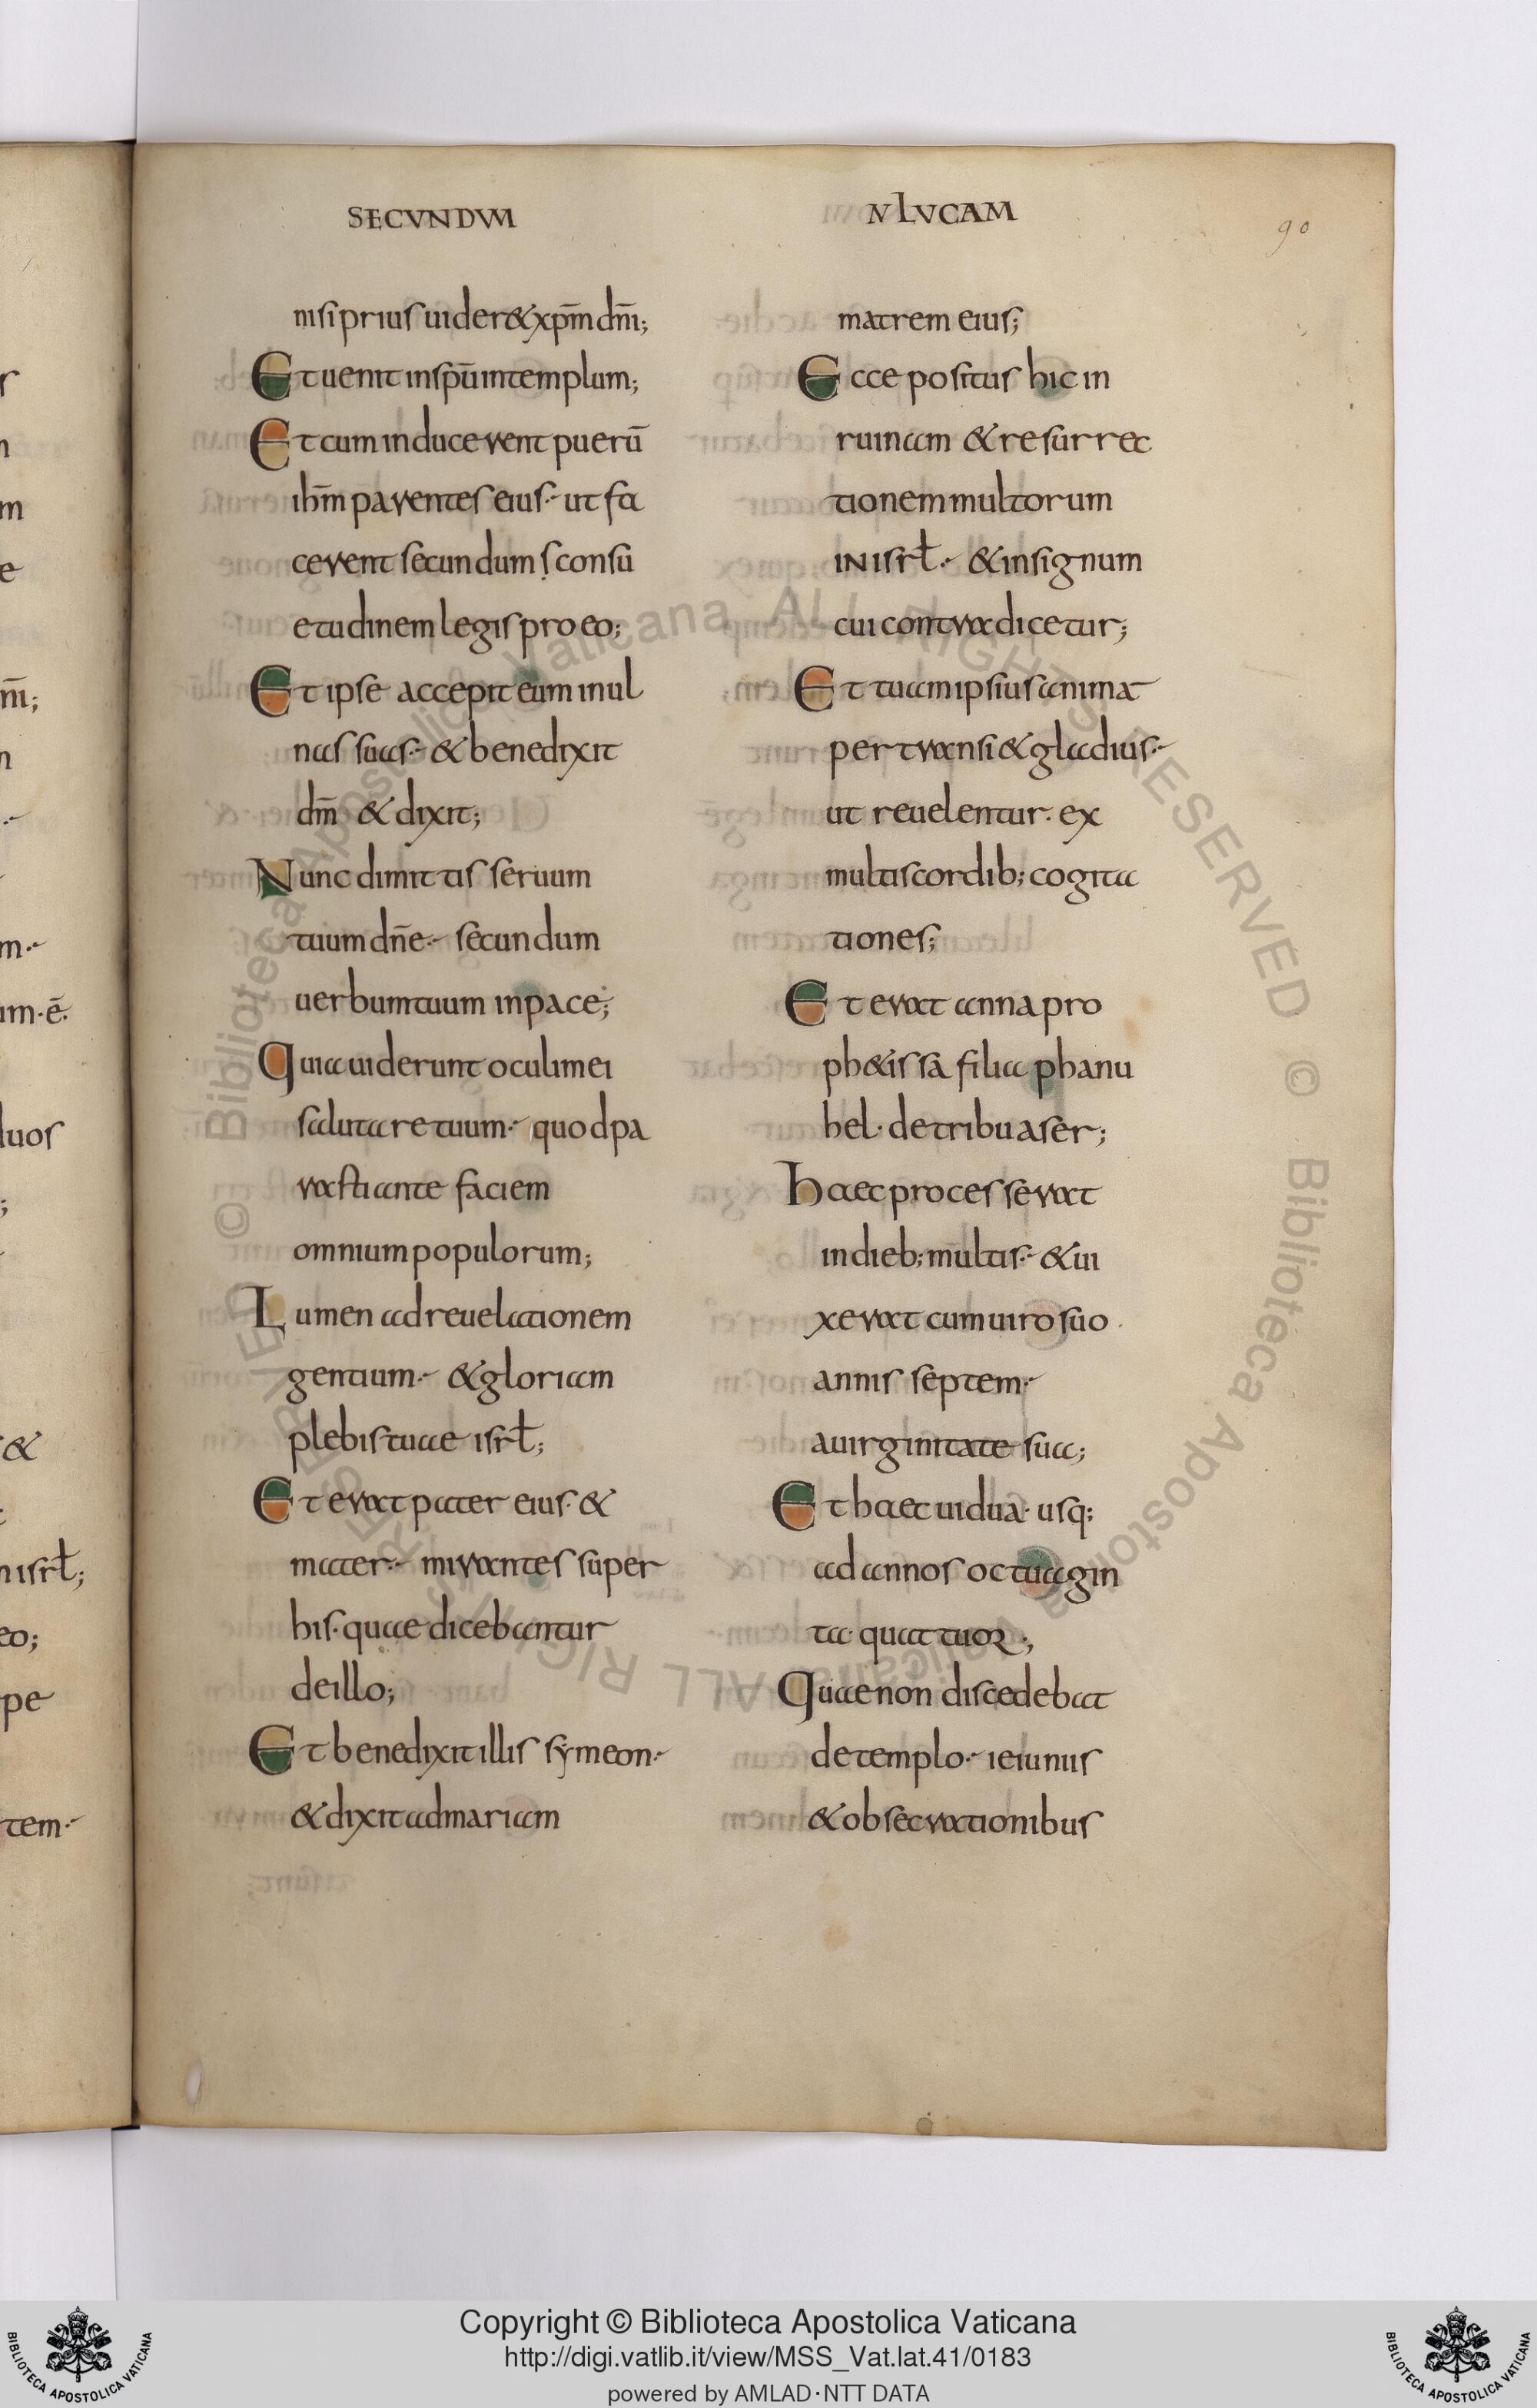 SECVNDVM
nisi prius uider& xp̄m dm̄i;
Et uenit in sp̄u in templum;
Et cum inducerent puerū
ih̄m parentes eius·- ut fa
cerent secundum s consu
etudinem legis pro eo;
Et ipse accepit eum in ul
nas suas·- & benedixit
dm̄ & dixit;
Nunc dimittis seruum
tuum dn̄e·- secundum
uerbum tuum in pace;
Quia uiderunt oculi mei
salutare tuum·- quod pa
rasti ante faciem
omnium populorum;
Lumen ad reuelationem
gentium·- & gloriam
plebis tuae isrł;
Et erat pater eius· &
mater·- mirantes super
his· quae dicebantur
de illo;
Et benedixit illis symeon·-
& dixit ad mariam
N LVCAM
90
matrem eius;
Ecce positus hic in
ruinam & resurrec
tionem multorum
IN isrł·- & in signum
cui contradicetur;
Et tuam ipsius anima
pertransi& gladius·-
ut reuelentur· ex
multis cordib; cogita
tiones;
Et erat anna pro
ph&issa filia phanu
hel· de tribu aser;
haec processerat
in dieb; multis·- & ui
xerat cum uiro suo
annis septem·-
a uirginitate sua;
Et haec uidua· usq;
ad annos octuagin
ta· quattuor·;
Quae non discedebat
de templo·- ieiuniis
& obsecrationibus
r
n
m
e
m̄i;
n
·-
m·-
um·ē·
duos
;
&
n isrł;
eo;
pe
tem·-
© Biblioteca Apostolica Vaticana ALL RIGHTS RESERVED © Biblioteca Apostolica Vaticana ALL RIGHTS RESERVED
Copyright © Biblioteca Apostolica Vaticana
http://digi.vatlib.it/view/MSS_Vat.lat.41/0183
powered by AMLAD·NTT DATA
BIBLIOTECA APOSTOLICA VATICANA
BIBLIOTECA APOSTOLICA VATICANA